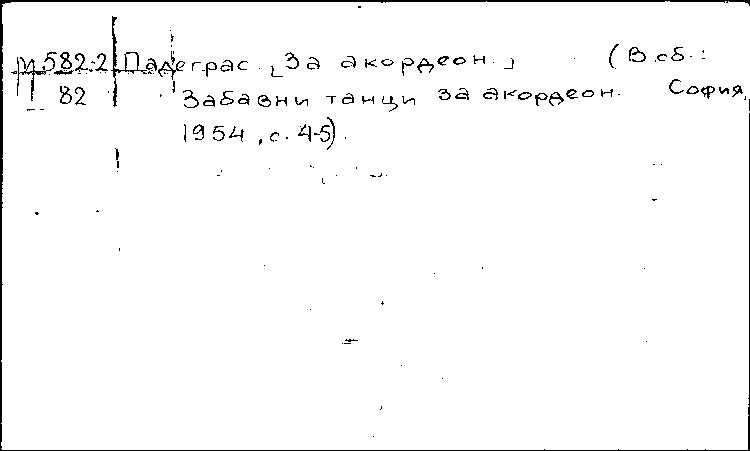 М 582-2 Падеграс. [За акордеон.] (В сб.:
82 Забавни танци за акордеон. София,
1954, с. 4-5).